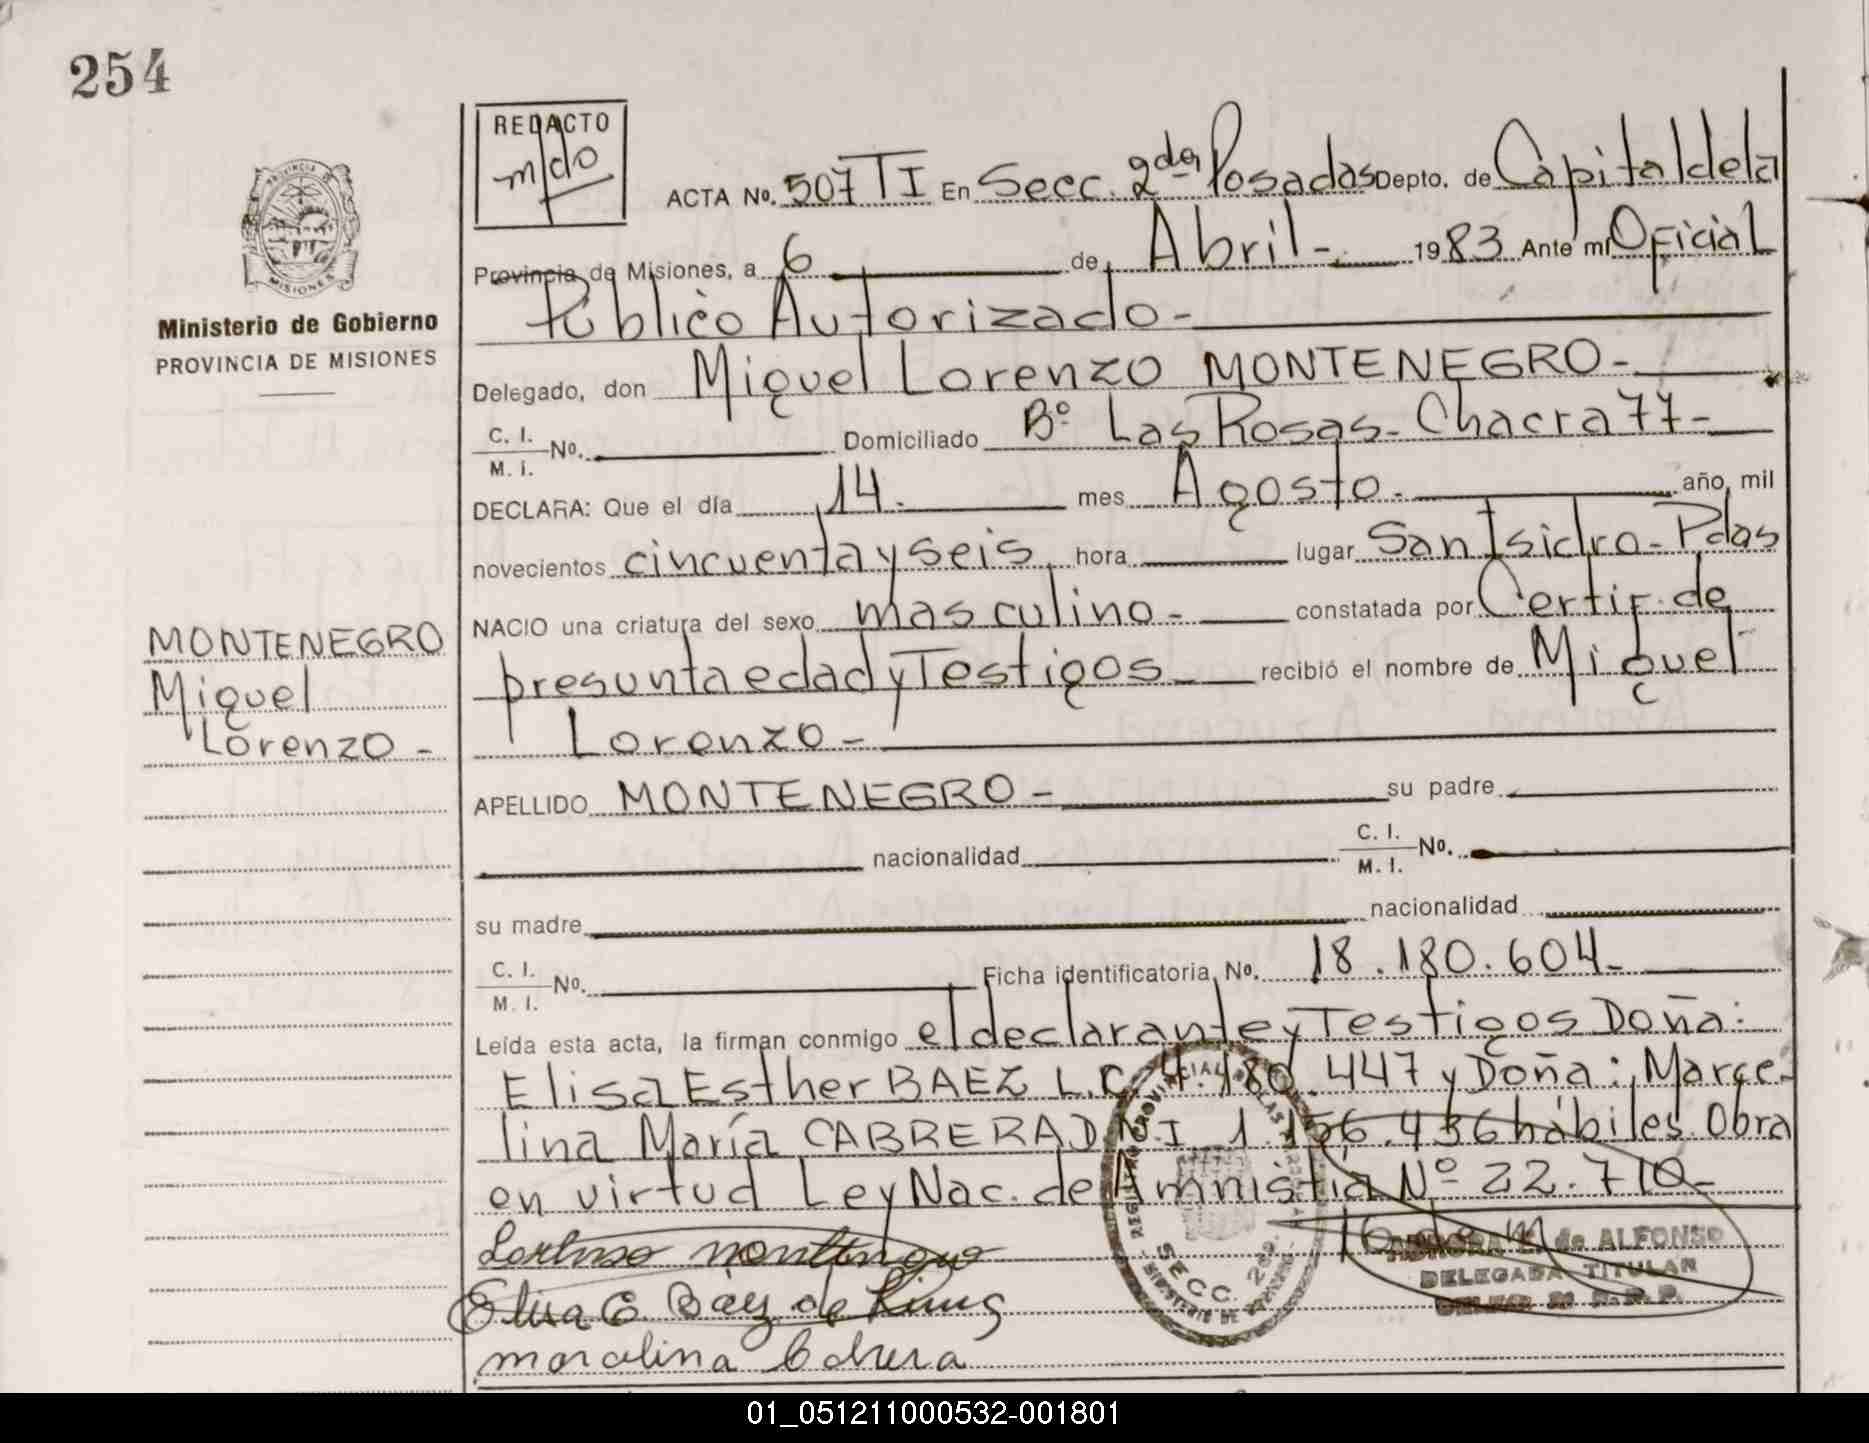 254
REDACTO
m/do
ACTA No. 507 TI En Secc. 2da Posadas Depto. de Capital de la
Provincia de Misiones, a 6 de Abril - 1983 Ante mí Oficial
Público Autorizado -
Ministerio de Gobierno
PROVINCIA DE MISIONES
Delegado, don Miguel Lorenzo MONTENEGRO -
C. I.
M. I. No. Domiciliado Bº Las Rosas - Chacra 77 -
DECLARA: Que el día 14. mes Agosto. año mil
novecientos cincuenta y seis hora lugar San Isidro - Pdas
NACIO una criatura del sexo masculino - constatada por Certif. de
presunta edad y Testigos - recibió el nombre de Miguel
Lorenzo -
MONTENEGRO
Miguel
Lorenzo -
APELLIDO MONTENEGRO - su padre
nacionalidad C. I.
M. I. No.
su madre nacionalidad
C. I.
M. I. No. Ficha identificatoria, No. 18.180.604 -
Leída esta acta, la firman conmigo el declarante y Testigos Doña:
Elisa Esther BAEZ L.C. 4.480.447 y Doña: Marce-
lina María CABRERA D.N.I 1.156.436 hábiles. Obra
en virtud Ley Nac. de Amnistia Nº 22.710 -
Lorenso Montenegro
Elisa E. Báez de
marcelina Cabrera
SECC. 2da.
de ALFONSO
DELEGADA TITULAR
01_051211000532-001801